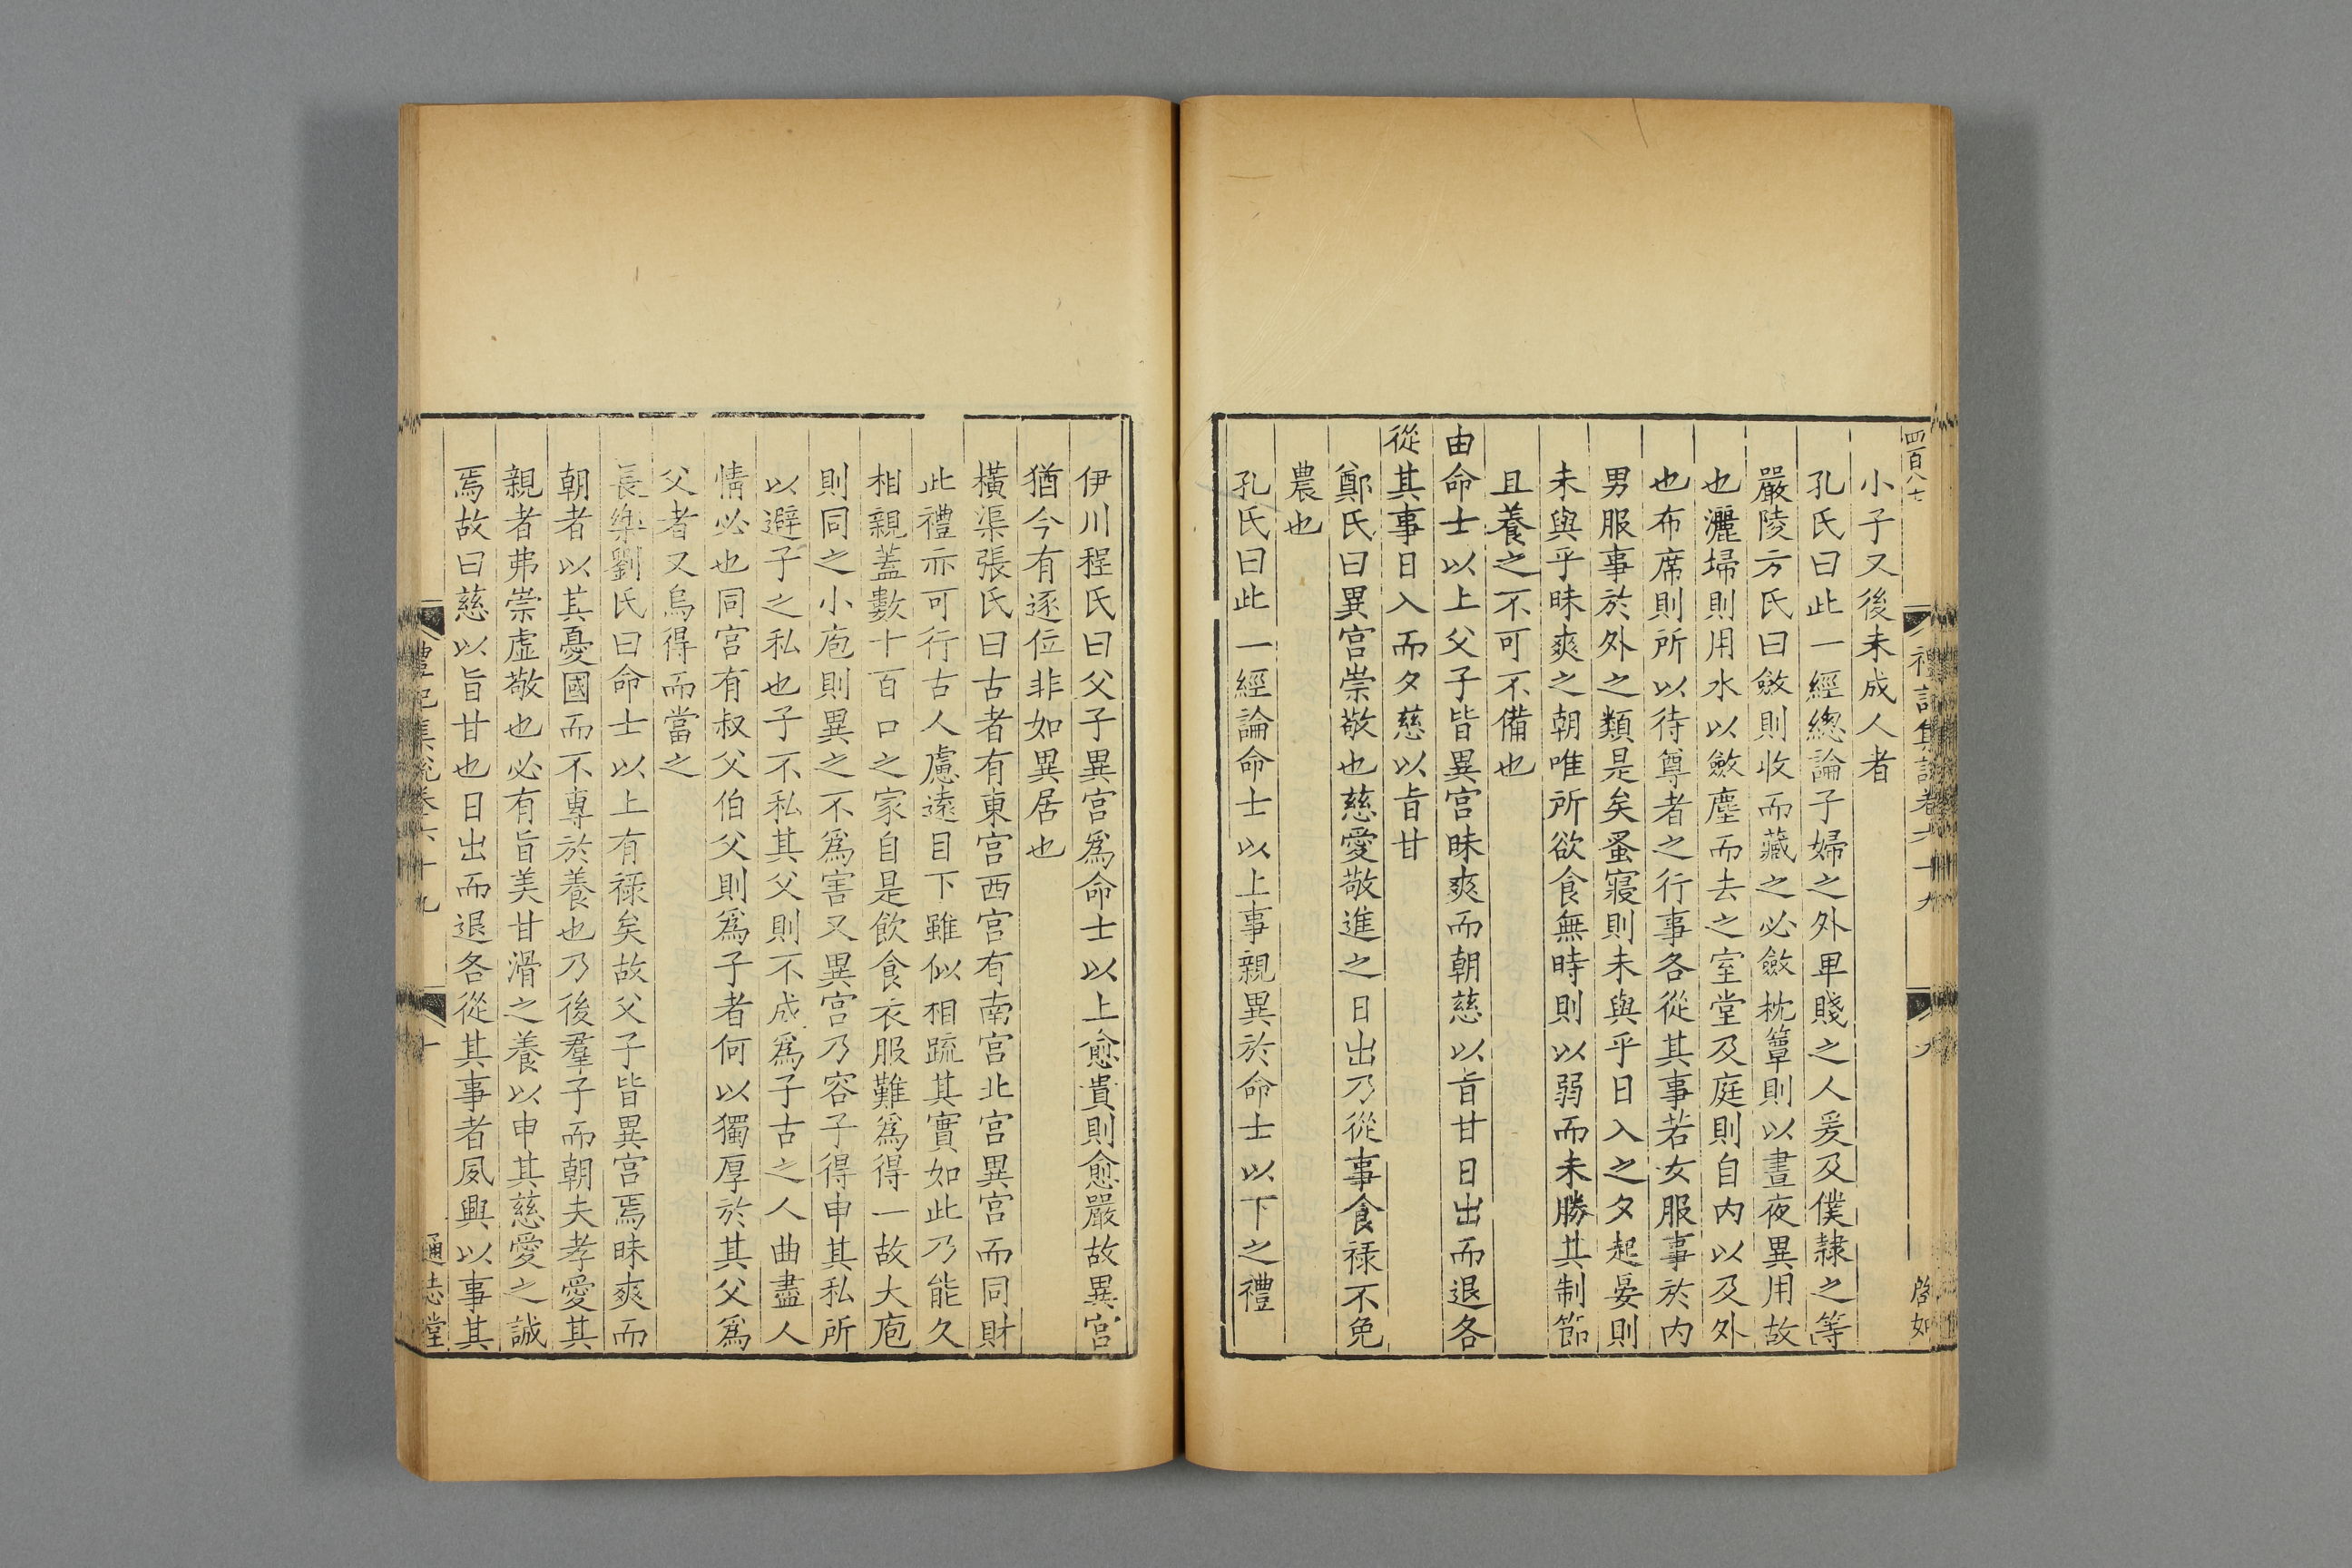 四百八七
小子又後未成人者
孔氏曰此一經總論子婦之外卑賤之人爰及僕隷之等
嚴陵方氏曰斂則收而藏之必斂枕簟則以晝夜異用故
也灑埽則用水以斂塵而去之室堂及庭則自内以及外
也布席則所以待尊者之行事各從其事若女服事於内
男服事於外之類是矣蚤寢則未與乎日入之夕起晏則
未與乎昧爽之朝唯所欲食無時則以弱而未勝其制節
且養之不可不備也
由命士以上父子皆異宫昧爽而朝慈以旨甘日出而退各
從其事日入而夕慈以旨甘
鄭氏曰異宫崇敬也慈愛敬進之日出乃從事食禄不免
農也
孔氏曰此一經論命士以上事親異於命士以下之禮
禮記集說卷六十九 九 啓如
伊川程氏曰父子異宫爲命士以上愈貴則愈嚴故異宫
猶今有逐位非如異居也
橫渠張氏曰古者有東宫西宫有南宫北宫異宫而同財
此禮亦可行古人慮遠目下雖似相疏其實如此乃能久
相親蓋數十百口之家自是飲食衣服難爲得一故大庖
則同之小庖則異之不爲害又異宫乃容子得申其私所
以避子之私也子不私其父則不成爲子古之人曲盡人
情必也同宫有叔父伯父則爲子者何以獨厚於其父爲
父者又烏得而當之
長樂劉氏曰命士以上有禄矣故父子皆異宫焉昧爽而
朝者以其憂國而不專於養也乃後羣子而朝夫孝愛其
親者弗崇虚敬也必有旨美甘滑之養以申其慈愛之誠
焉故曰慈以旨甘也日出而退各從其事者夙興以事其
禮記集說卷六十九 十 通志堂